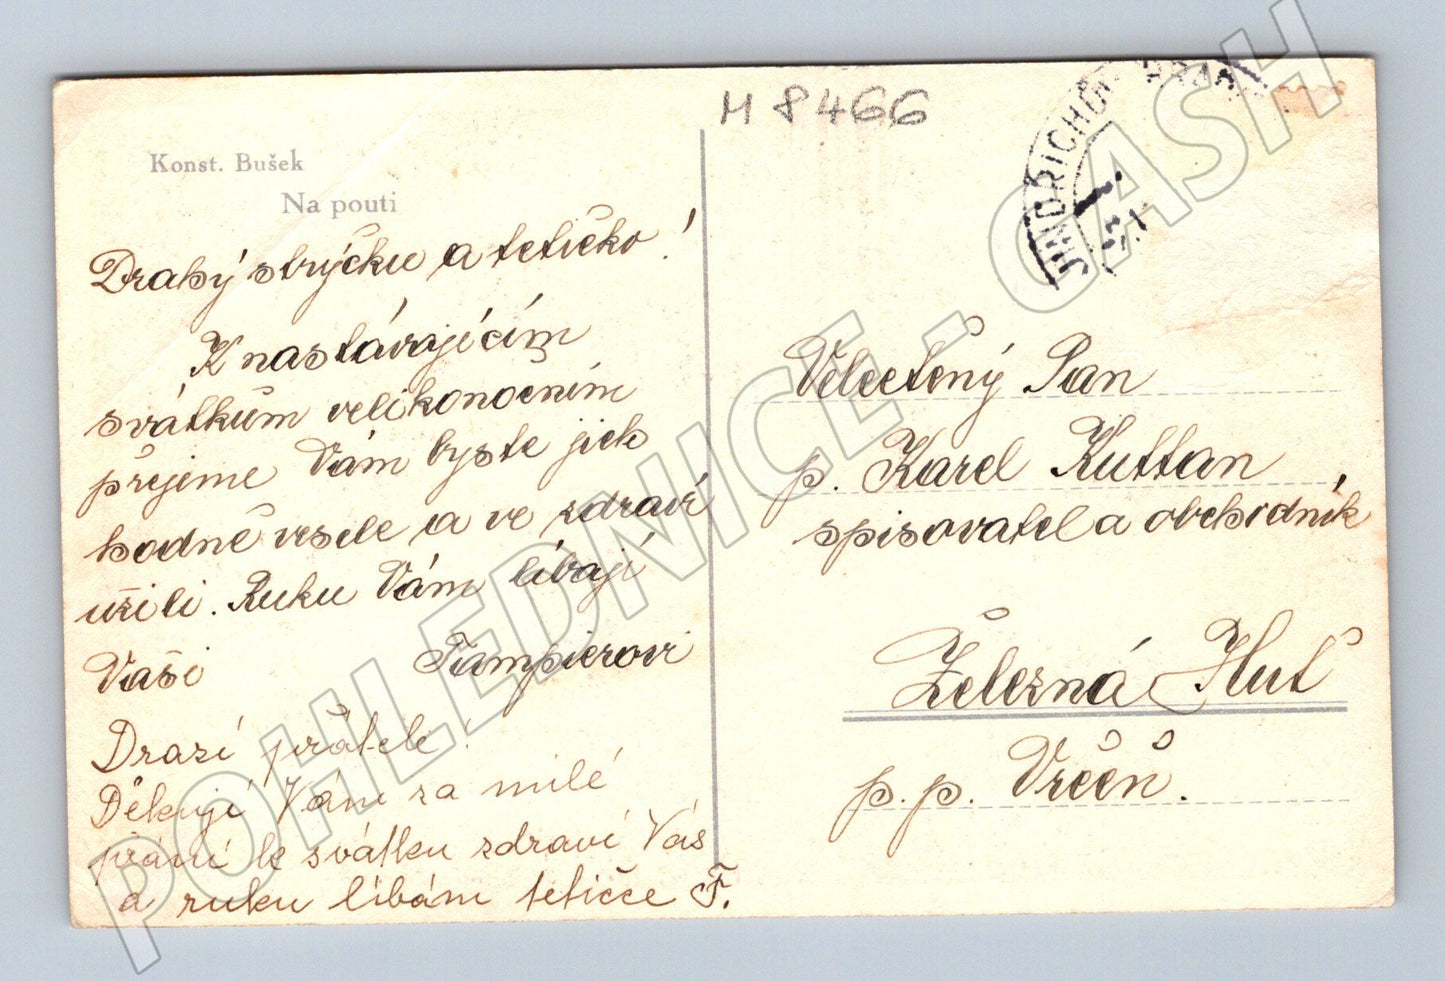 M 8466
Konst. Bušek
Na pouti
Drahý strýčku a tetičko!
K nastávajícím
svátkům velikonočním
přejeme Vám byste jich
hodně vesele a ve zdraví
užili. Ruku Vám líbají
Vaši
Drazí přátelé!
Děkuji Vám za milé
přání k svátku zdraví Vás
a ruku líbám tetičce F.
JINDŘICHŮV HRADEC
Velectěný Pan
p. Karel Kuttan
spisovatel a obchodník
Železná Huť
p. p. Vrčeň.
POHLEDNICE - CASH